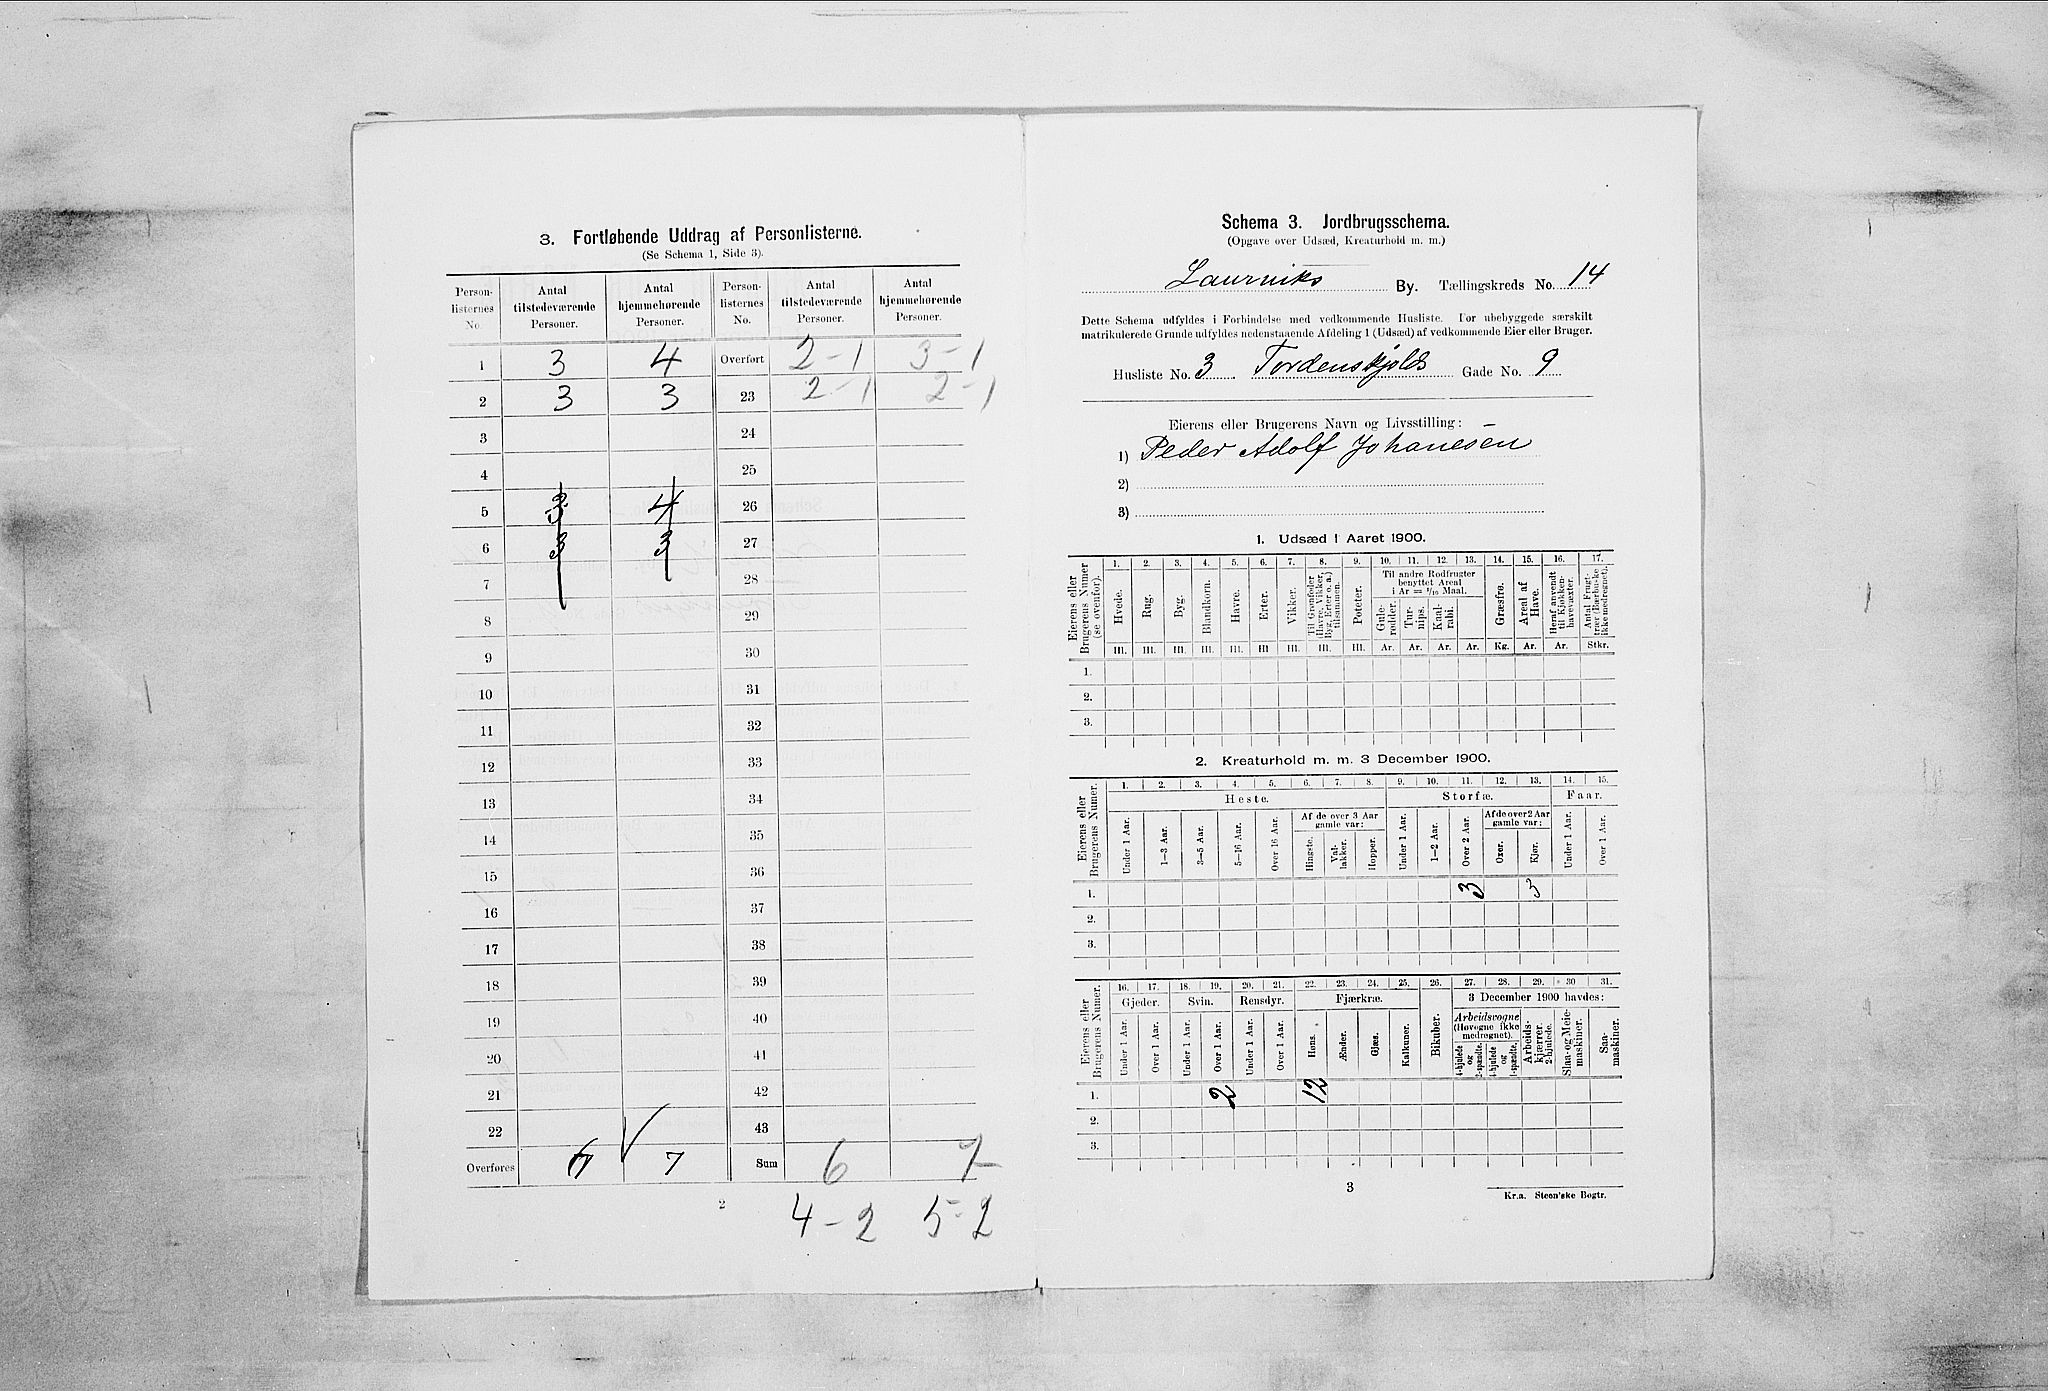 3. Fortløbende Uddrag af Personlisterne.
(Se Schema 1, Side 3).
Person-listernes No. | Antal tilstedeværende Personer. | Antal hjemmehørende Personer. | Person-listernes No. | Antal tilstedeværende Personer. | Antal hjemmehørende Personer.
1 | 3 | 4 | Overført | 2-1 | 3-1
2 | 3 | 3 | 23 | 2-1 | 2-1
3 | | | 24
4 | | | 25
5 | 3 | 4 | 26
6 | 3 | 3 | 27
7 | | | 28
8 | | | 29
9 | | | 30
10 | | | 31
11 | | | 32
12 | | | 33
13 | | | 34
14 | | | 35
15 | | | 36
16 | | | 37
17 | | | 38
18 | | | 39
19 | | | 40
20 | | | 41
21 | | | 42
22 | | | 43
Overføres | 6 | 7 | Sum | 6 | 7
2
4-2 5-2
Schema 3. Jordbrugsschema.
(Opgave over Udsæd, Kreaturhold m. m.)
Laurviks By. Tællingskreds No. 14
Dette Schema udfyldes i Forbindelse med vedkommende Husliste. For ubebyggede særskilt
matrikulerede Grunde udfyldes nedenstaaende Afdeling 1 (Udsæd) af vedkommende Eier eller Bruger.
Husliste No. 3 Tordenskjolds Gade No. 9
Eierens eller Brugerens Navn og Livsstilling:
1) Peder Adolf Johanesen
2)
3)
1. Udsæd i Aaret 1900.
Eierens eller Brugerens Numer (se ovenfor).
1. 2. 3. 4. 5. 6. 7. 8. 9. 10. 11. 12. 13. 14. 15. 16. 17.
Hvede. Rug. Byg. Blandkorn. Havre. Erter. Vikker. Til Grønfoder (Havre, Vikker, Byg, Erter o. a.) tilsammen. Poteter.
Til andre Rodfrugter benyttet Areal i Ar = 1/10 Maal.
Gule-rødder. Tur-nips. Kaal-rabi.
Græsfrø. Areal af Have. Heraf anvendt til Kjøkken-havevæxter. Antal Frugt-trær (Bærbuske ikke medregnet).
Hl. Hl. Hl. Hl. Hl. Hl Hl. Hl. Hl. Ar. Ar. Ar. Ar. Kg. Ar. Ar. Stkr.
1.
2.
3.
2. Kreaturhold m. m. 3 December 1900.
Eierens eller Brugerens Numer.
1. 2. 3. 4. 5. 6. 7. 8. 9. 10. 11. 12. 13. 14. 15.
Heste. Storfæ. Faar.
Af de over 3 Aar gamle var: Af de over 2 Aar gamle var:
Under 1 Aar. 1—3 Aar. 3—5 Aar. 5—16 Aar. Over 16 Aar. Hingste. Val-lakker. Hopper. Under 1 Aar. 1—2 Aar. Over 2 Aar. Oxer. Kjør. Under 1 Aar. Over 1 Aar.
1. 3 3
2.
3.
Eierens eller Brugerens Numer.
16. 17. 18. 19. 20. 21. 22. 23. 24. 25. 26. 27. 28. 29. 30 31.
Gjeder. Svin. Rensdyr. Fjærkræ. Bikuber. 3 December 1900 havdes:
Under 1 Aar. Over 1 Aar. Under 1 Aar. Over 1 Aar. Under 1 Aar. Over 1 Aar. Høns. Ænder. Gjæs. Kalkuner.
Arbeidsvogne (Høvogne ikke medregnet). 4-hjulede og 2-spændte. 4-hjulede og 1-spændte. Arbeids-kjærrer. 2-hjulede. Slaa- og Meie-maskiner. Saa-maskiner.
1. 2 12
2.
3.
3
Kr.a. Steen'ske Bogtr.